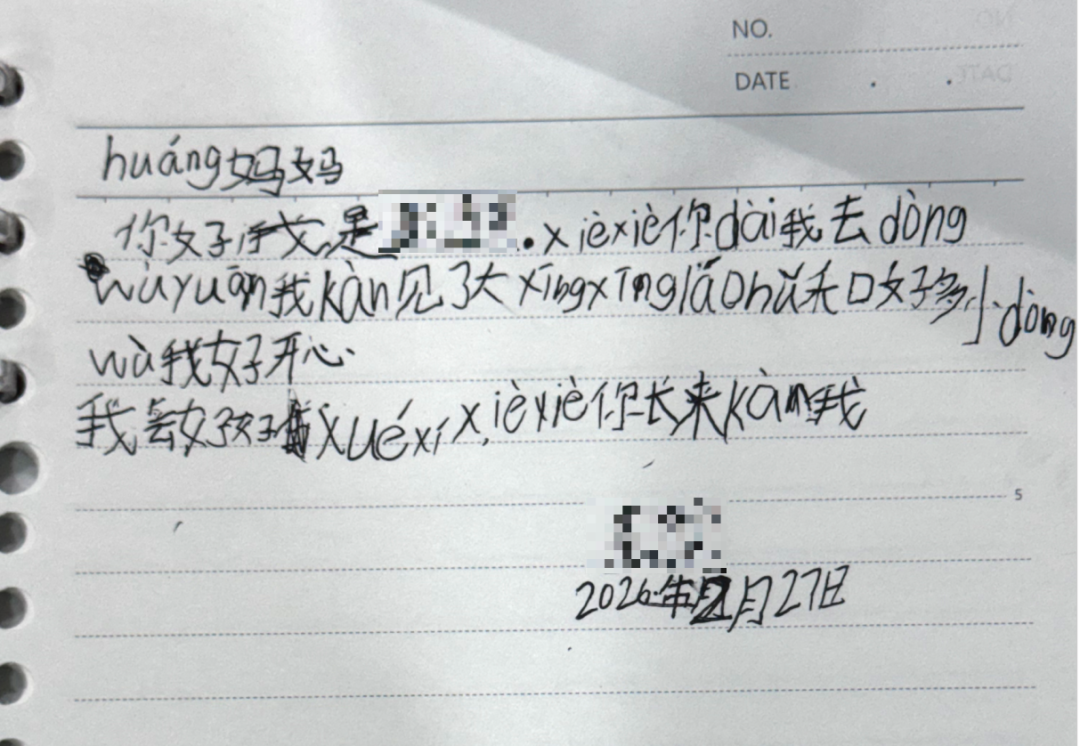 NO.
DATE . .
huáng妈妈
你好我是 .xièxiè你dài我去dòng
wùyuán我kàn见了大xīngxīnglǎohǔ禾口好多小dòng
wù我好开心.
我会好好xuéxí xièxiè你长来kàn我
5
2026年2月27日